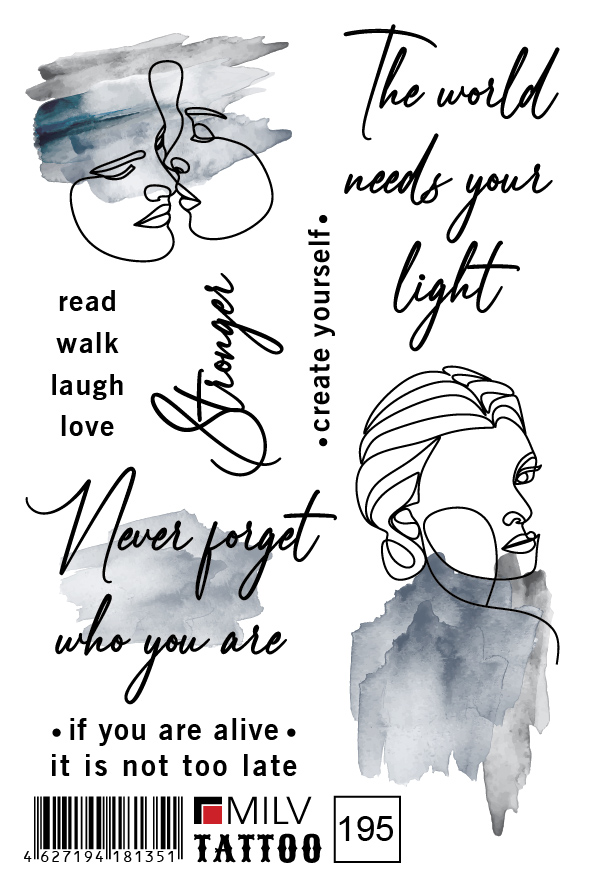 The world
needs your
light
•create yourself•
read
walk
laugh
love
Stronger
Never forget
who you are
•if you are alive•
it is not too late
4 627194 181351
MILV
TATTOO
195